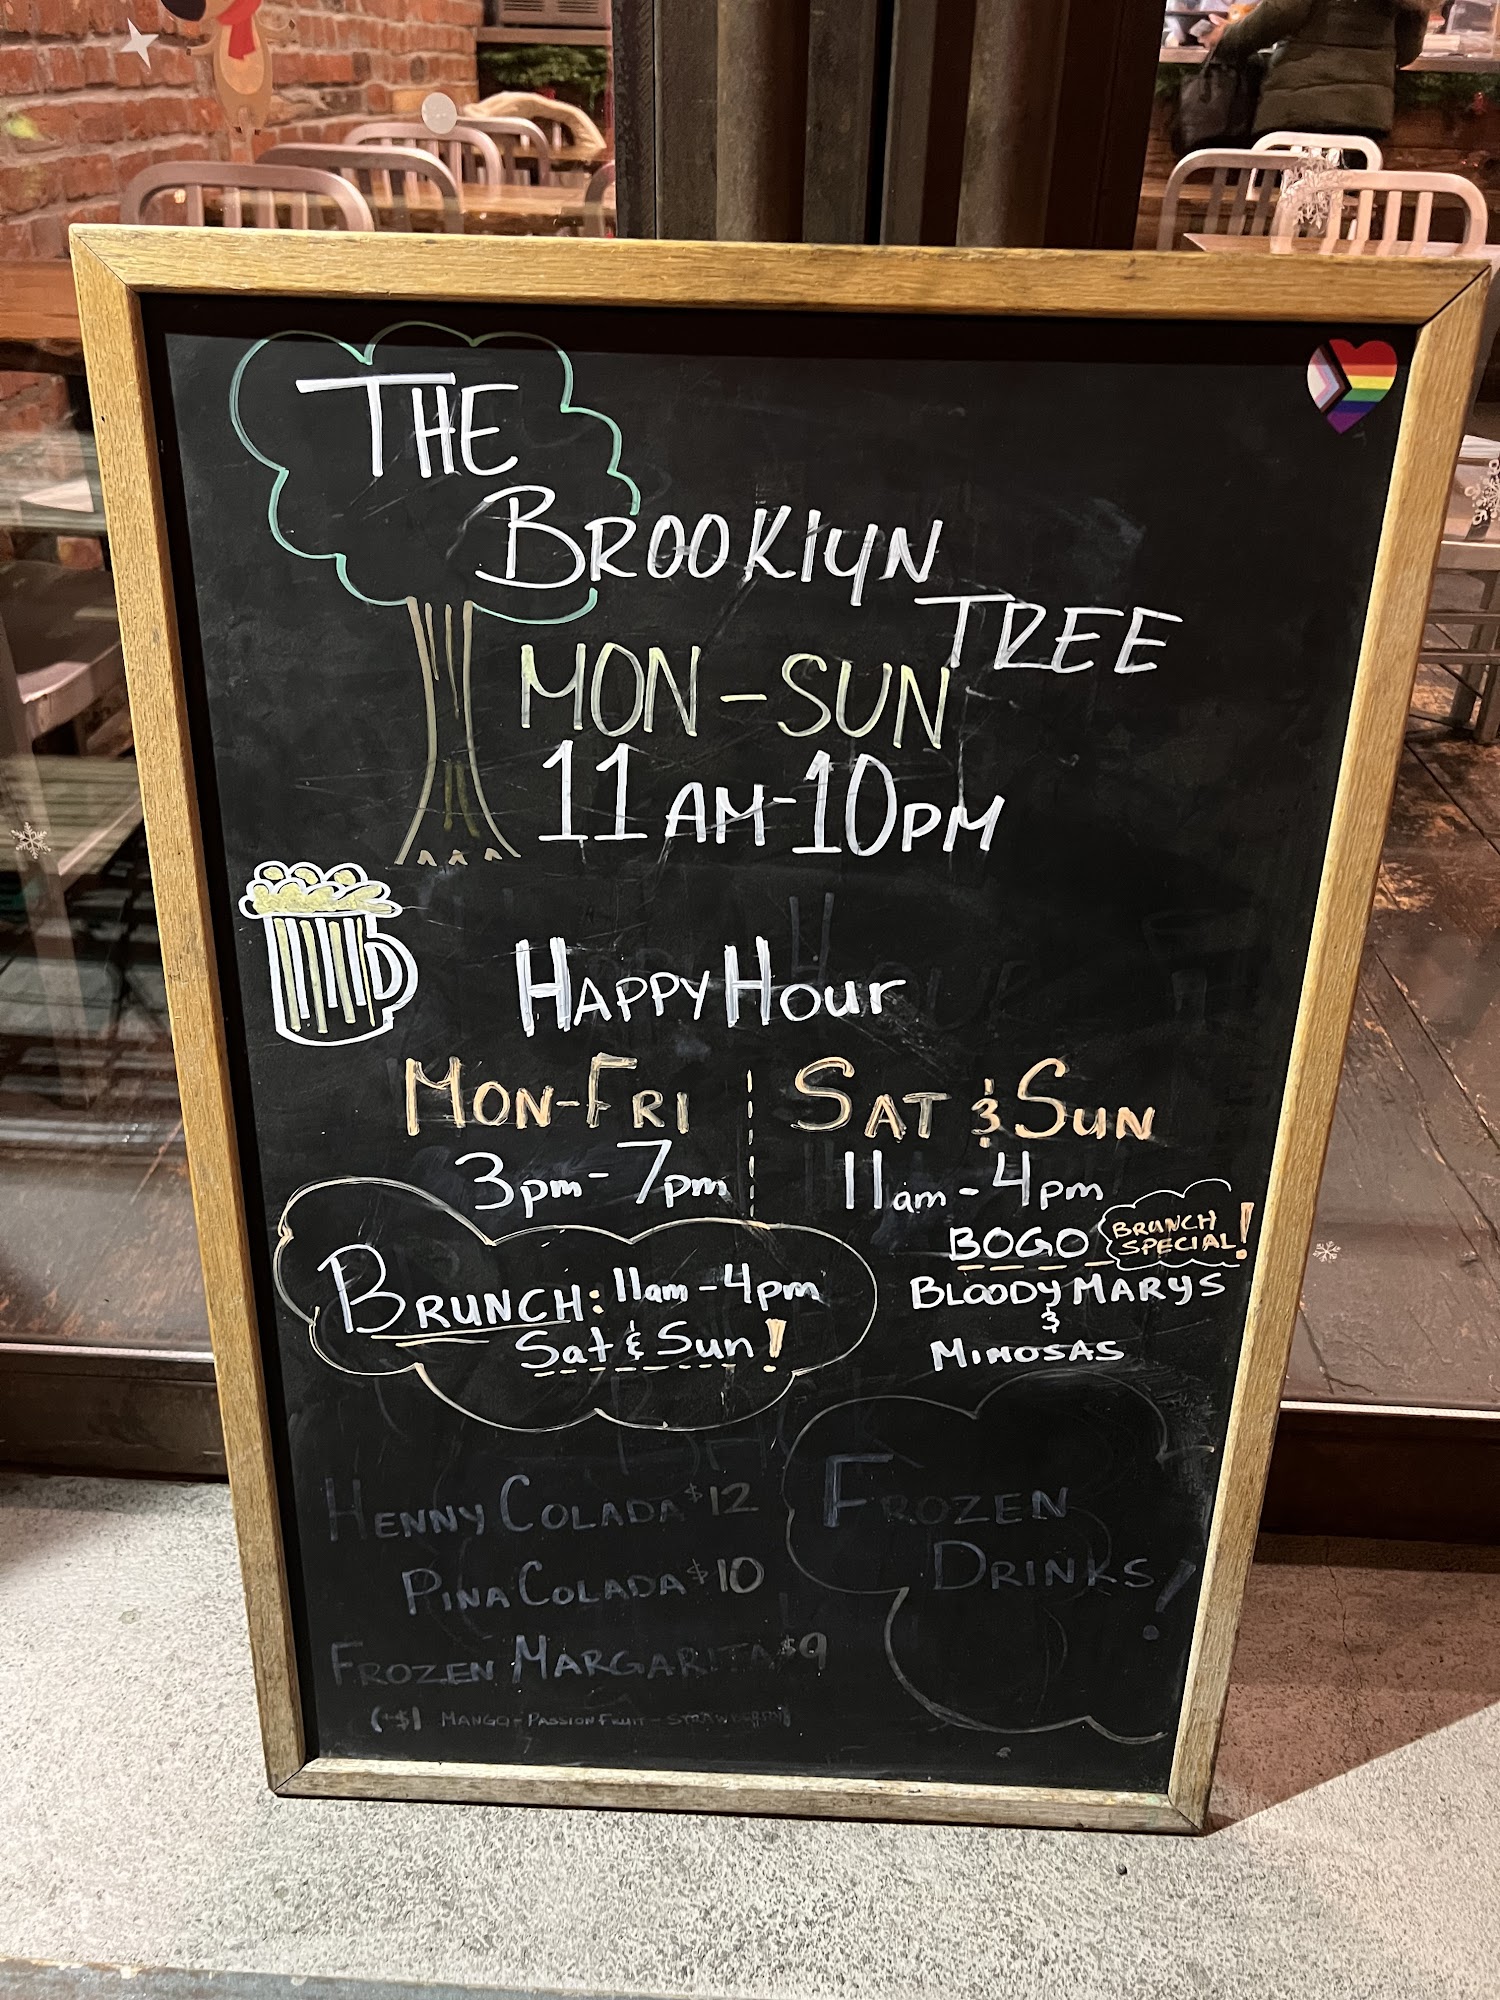 THE
BROOKLYN
TREE
MON-SUN
11AM-10PM
HAPPY HOUR
MON-FRI
3pm-7pm
SAT & SUN
11am-4pm
BOGO BRUNCH SPECIAL!
BLOODY MARYS
&
MIMOSAS
BRUNCH: 11am-4pm
Sat & Sun!
HENNY COLADA $12
PINA COLADA $10
FROZEN MARGARITA $9
(+$1 MANGO-PASSION FRUIT-STRAWBERRY)
FROZEN
DRINKS!